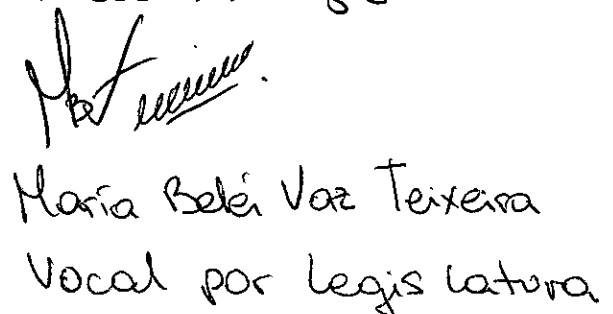 María Belén Vaz Teixeira
Vocal por Legislatura